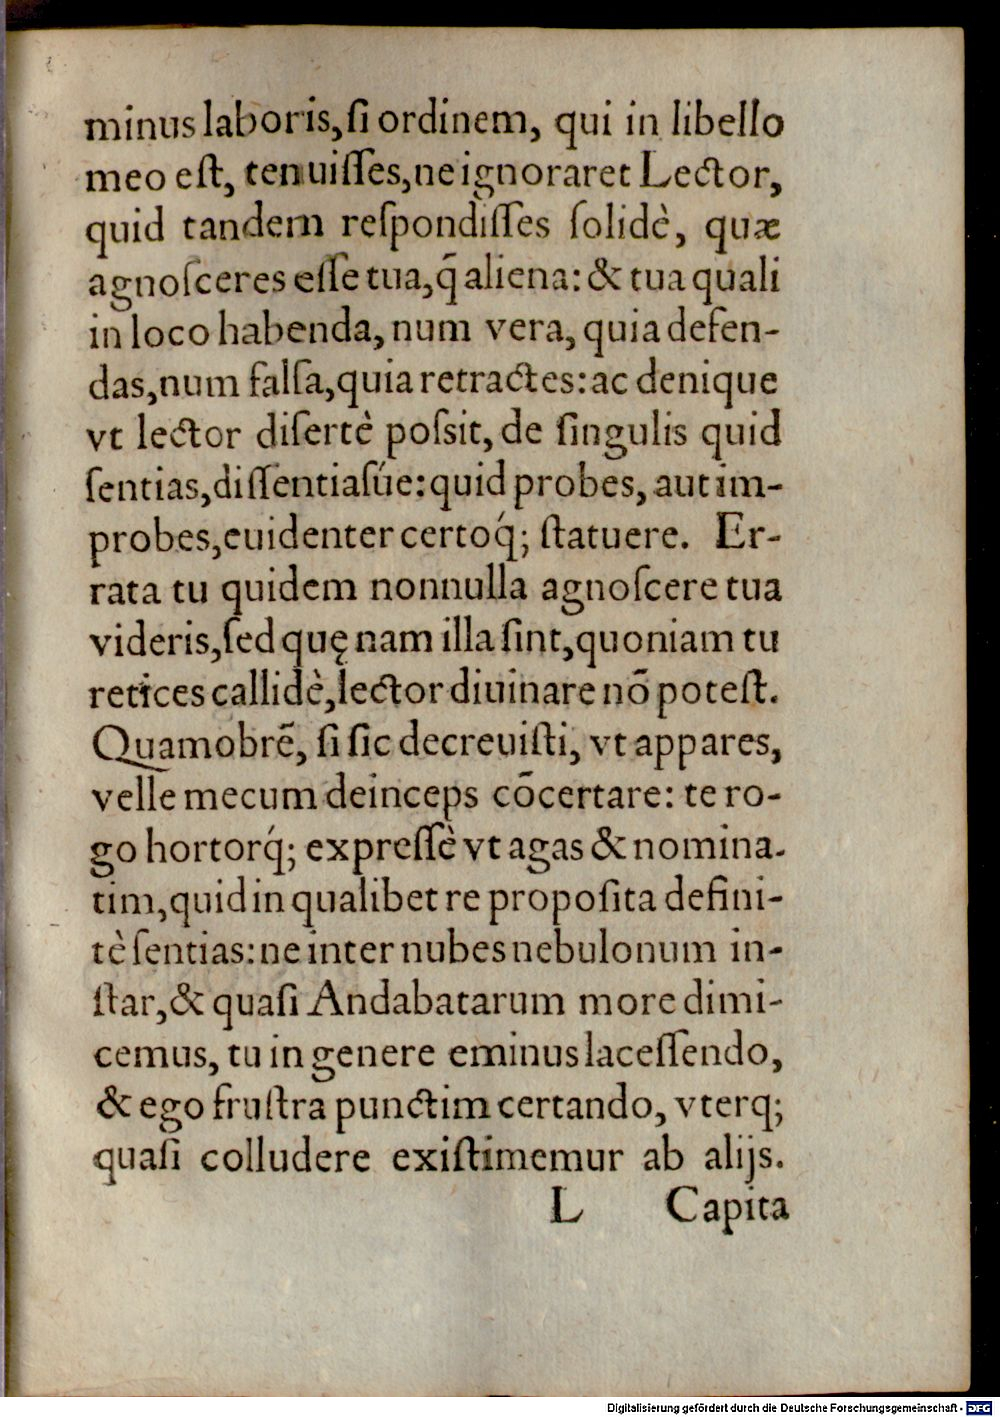 minus laboris, ſi ordinem, qui in libello
meo eſt, tenuiſſes, ne ignoraret Lector,
quid tandem reſpondiſſes ſolidè, quæ
agnoſceres eſſe tua, q̃ aliena: & tua quali
in loco habenda, num vera, quia defen-
das, num falſa, quia retractes: ac denique
vt lector diſertè poſsit, de ſingulis quid
ſentias, diſſentiaſúe: quid probes, aut im-
probes, euidenter certoq́; ſtatuere. Er-
rata tu quidem nonnulla agnoſcere tua
videris, ſed quę nam illa ſint, quoniam tu
retices callidè, lector diuinare nõ poteſt.
Quamobrẽ, ſi ſic decreuiſti, vt appares,
velle mecum deinceps cõcertare: te ro-
go hortorq́; expreſſè vt agas & nomina-
tim, quid in qualibet re propoſita defini-
tè ſentias: ne inter nubes nebulonum in-
ſtar, & quaſi Andabatarum more dimi-
cemus, tu in genere eminus laceſſendo,
& ego fruſtra punctim certando, vterq;
quaſi colludere exiſtimemur ab alijs.
L Capita
Digitalisierung gefördert durch die Deutsche Forschungsgemeinschaft - DFG